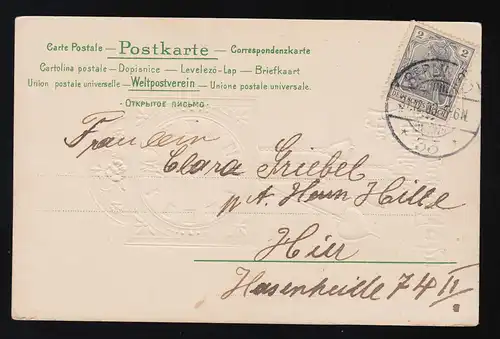 Carte Postale – Postkarte – Correspondenzkarte
Cartolina postale – Dopisnice – Levelező-Lap – Briefkaart
Union postale universelle – Weltpostverein – Unione postale universale.
- ОТКРЫТОЕ ПИСЬМО -
2 2
Fräulein
Clara Griebel
p. A. Herrn Hille
Hier
Hasenheide 74 II